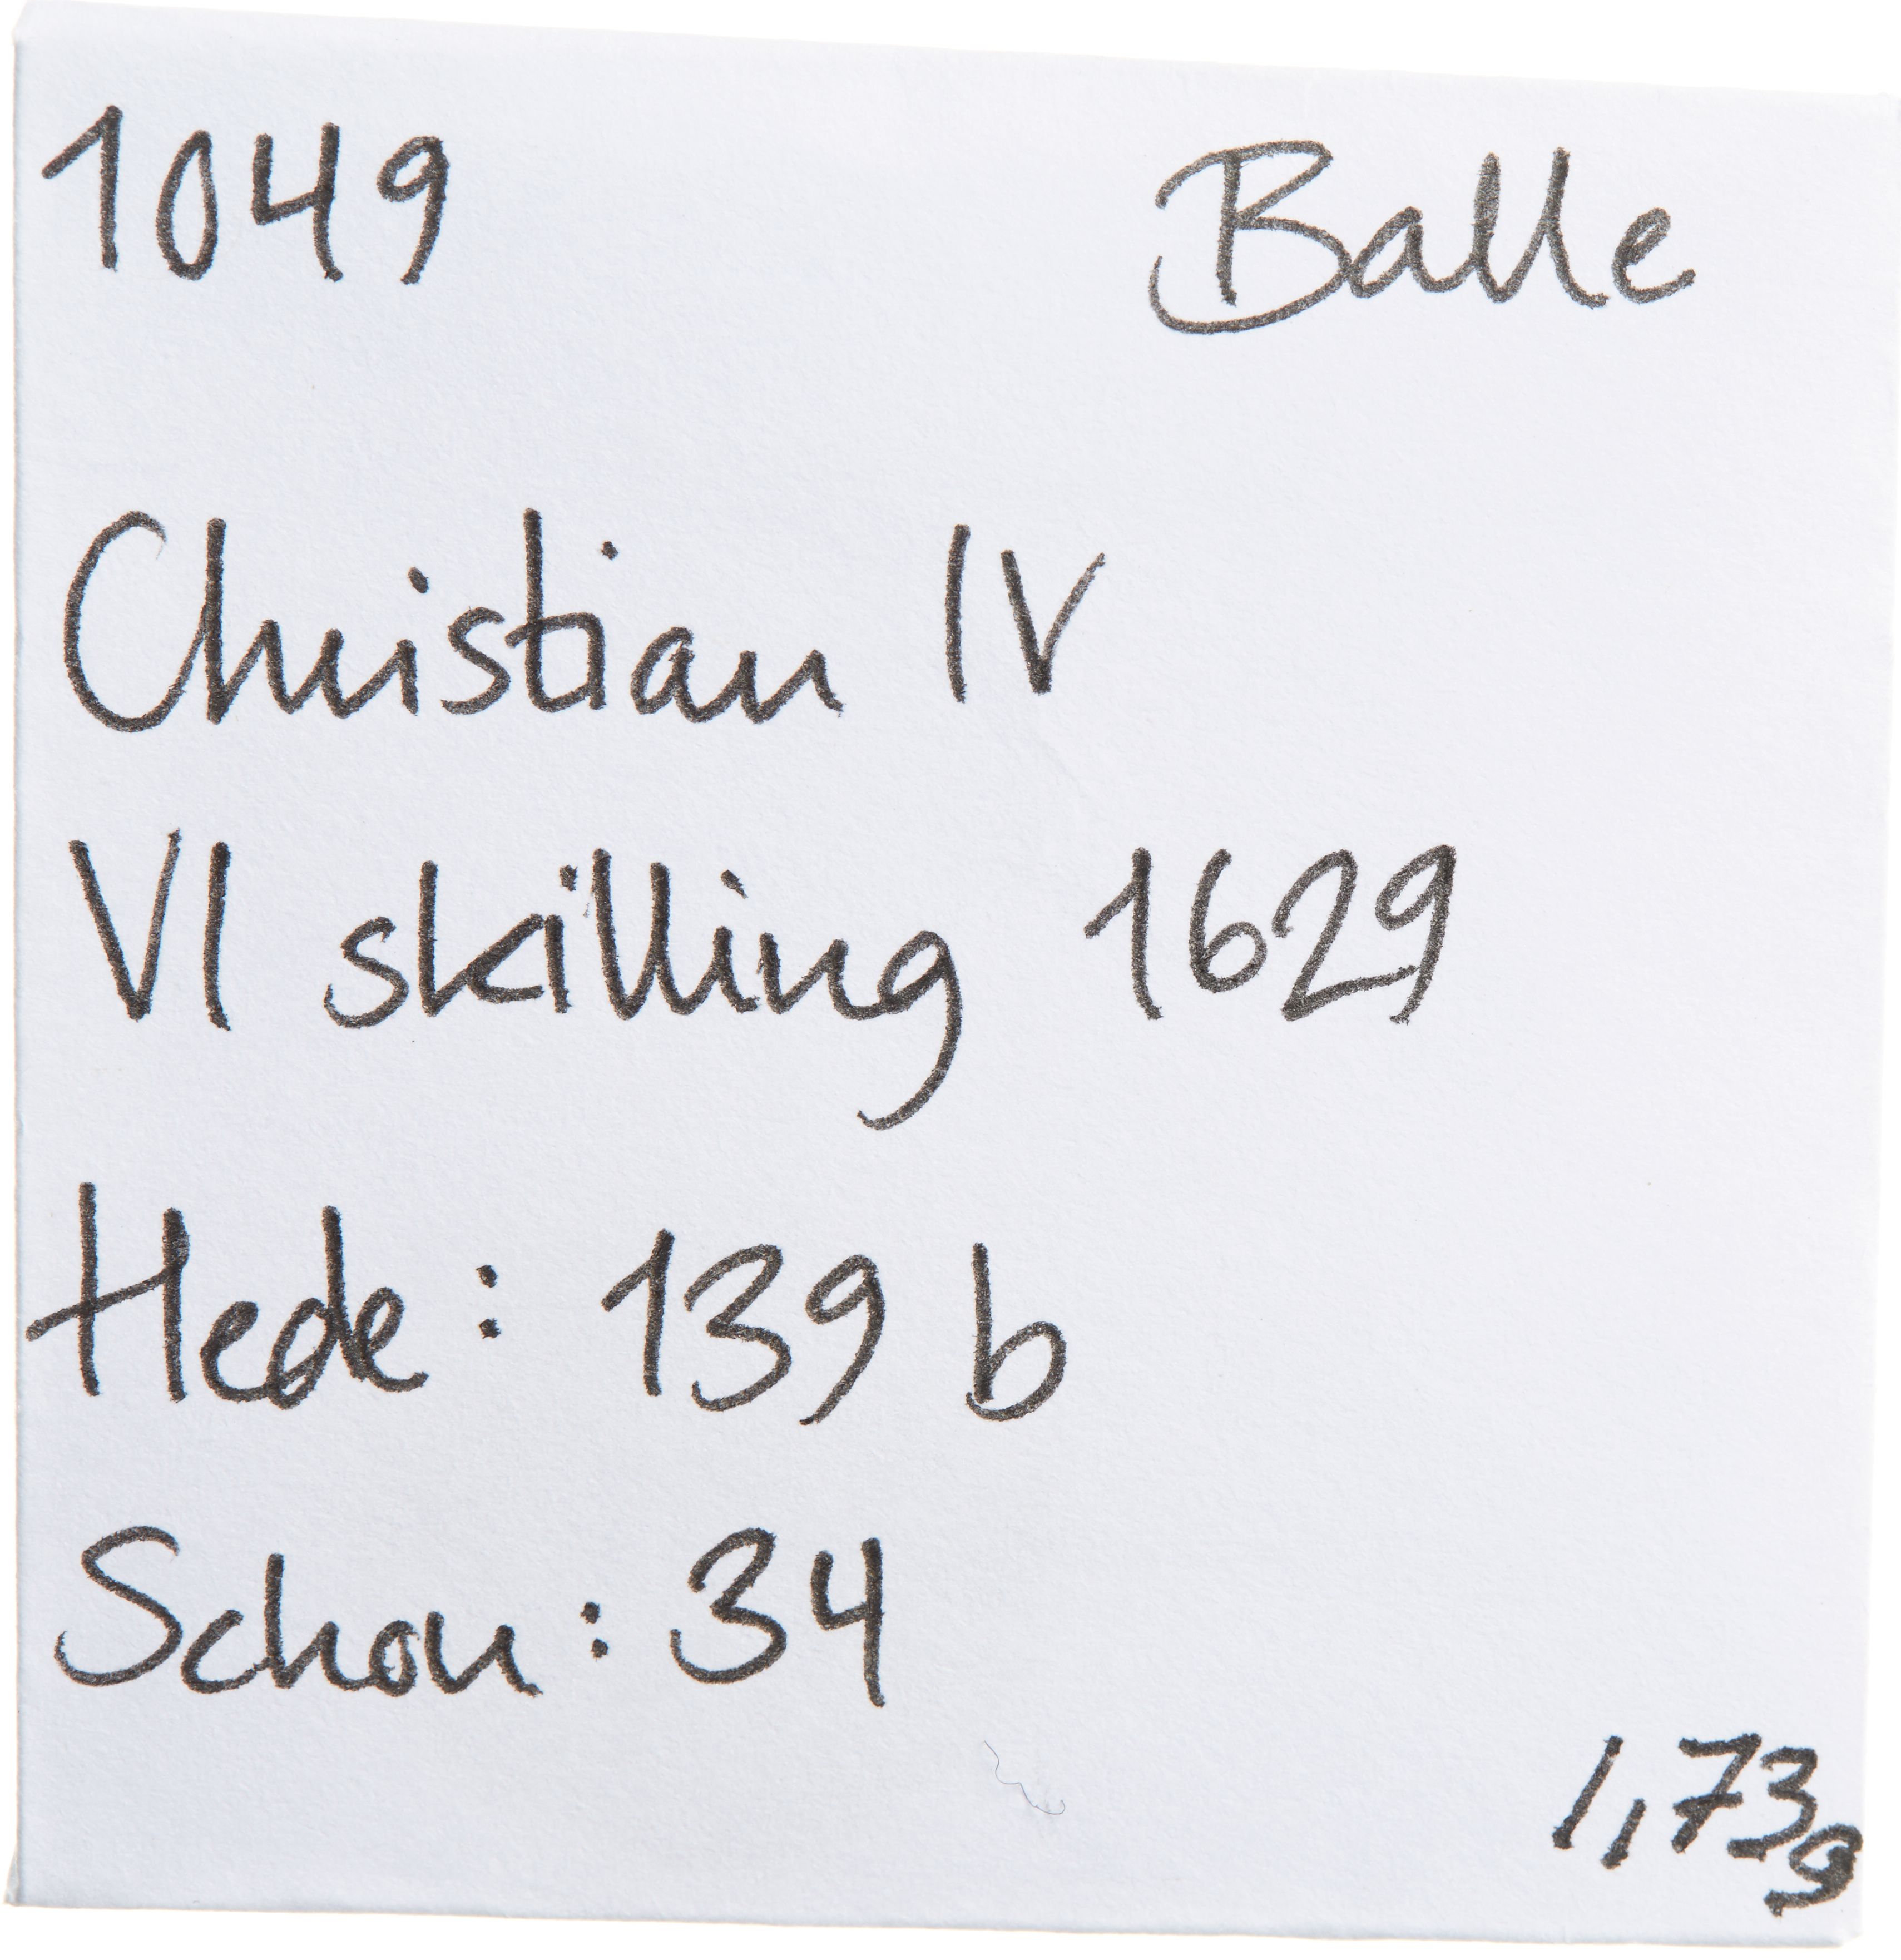 1049 Balle
Christian IV
VI skilling 1629
Hede: 139 b
Schou: 34
1,73g